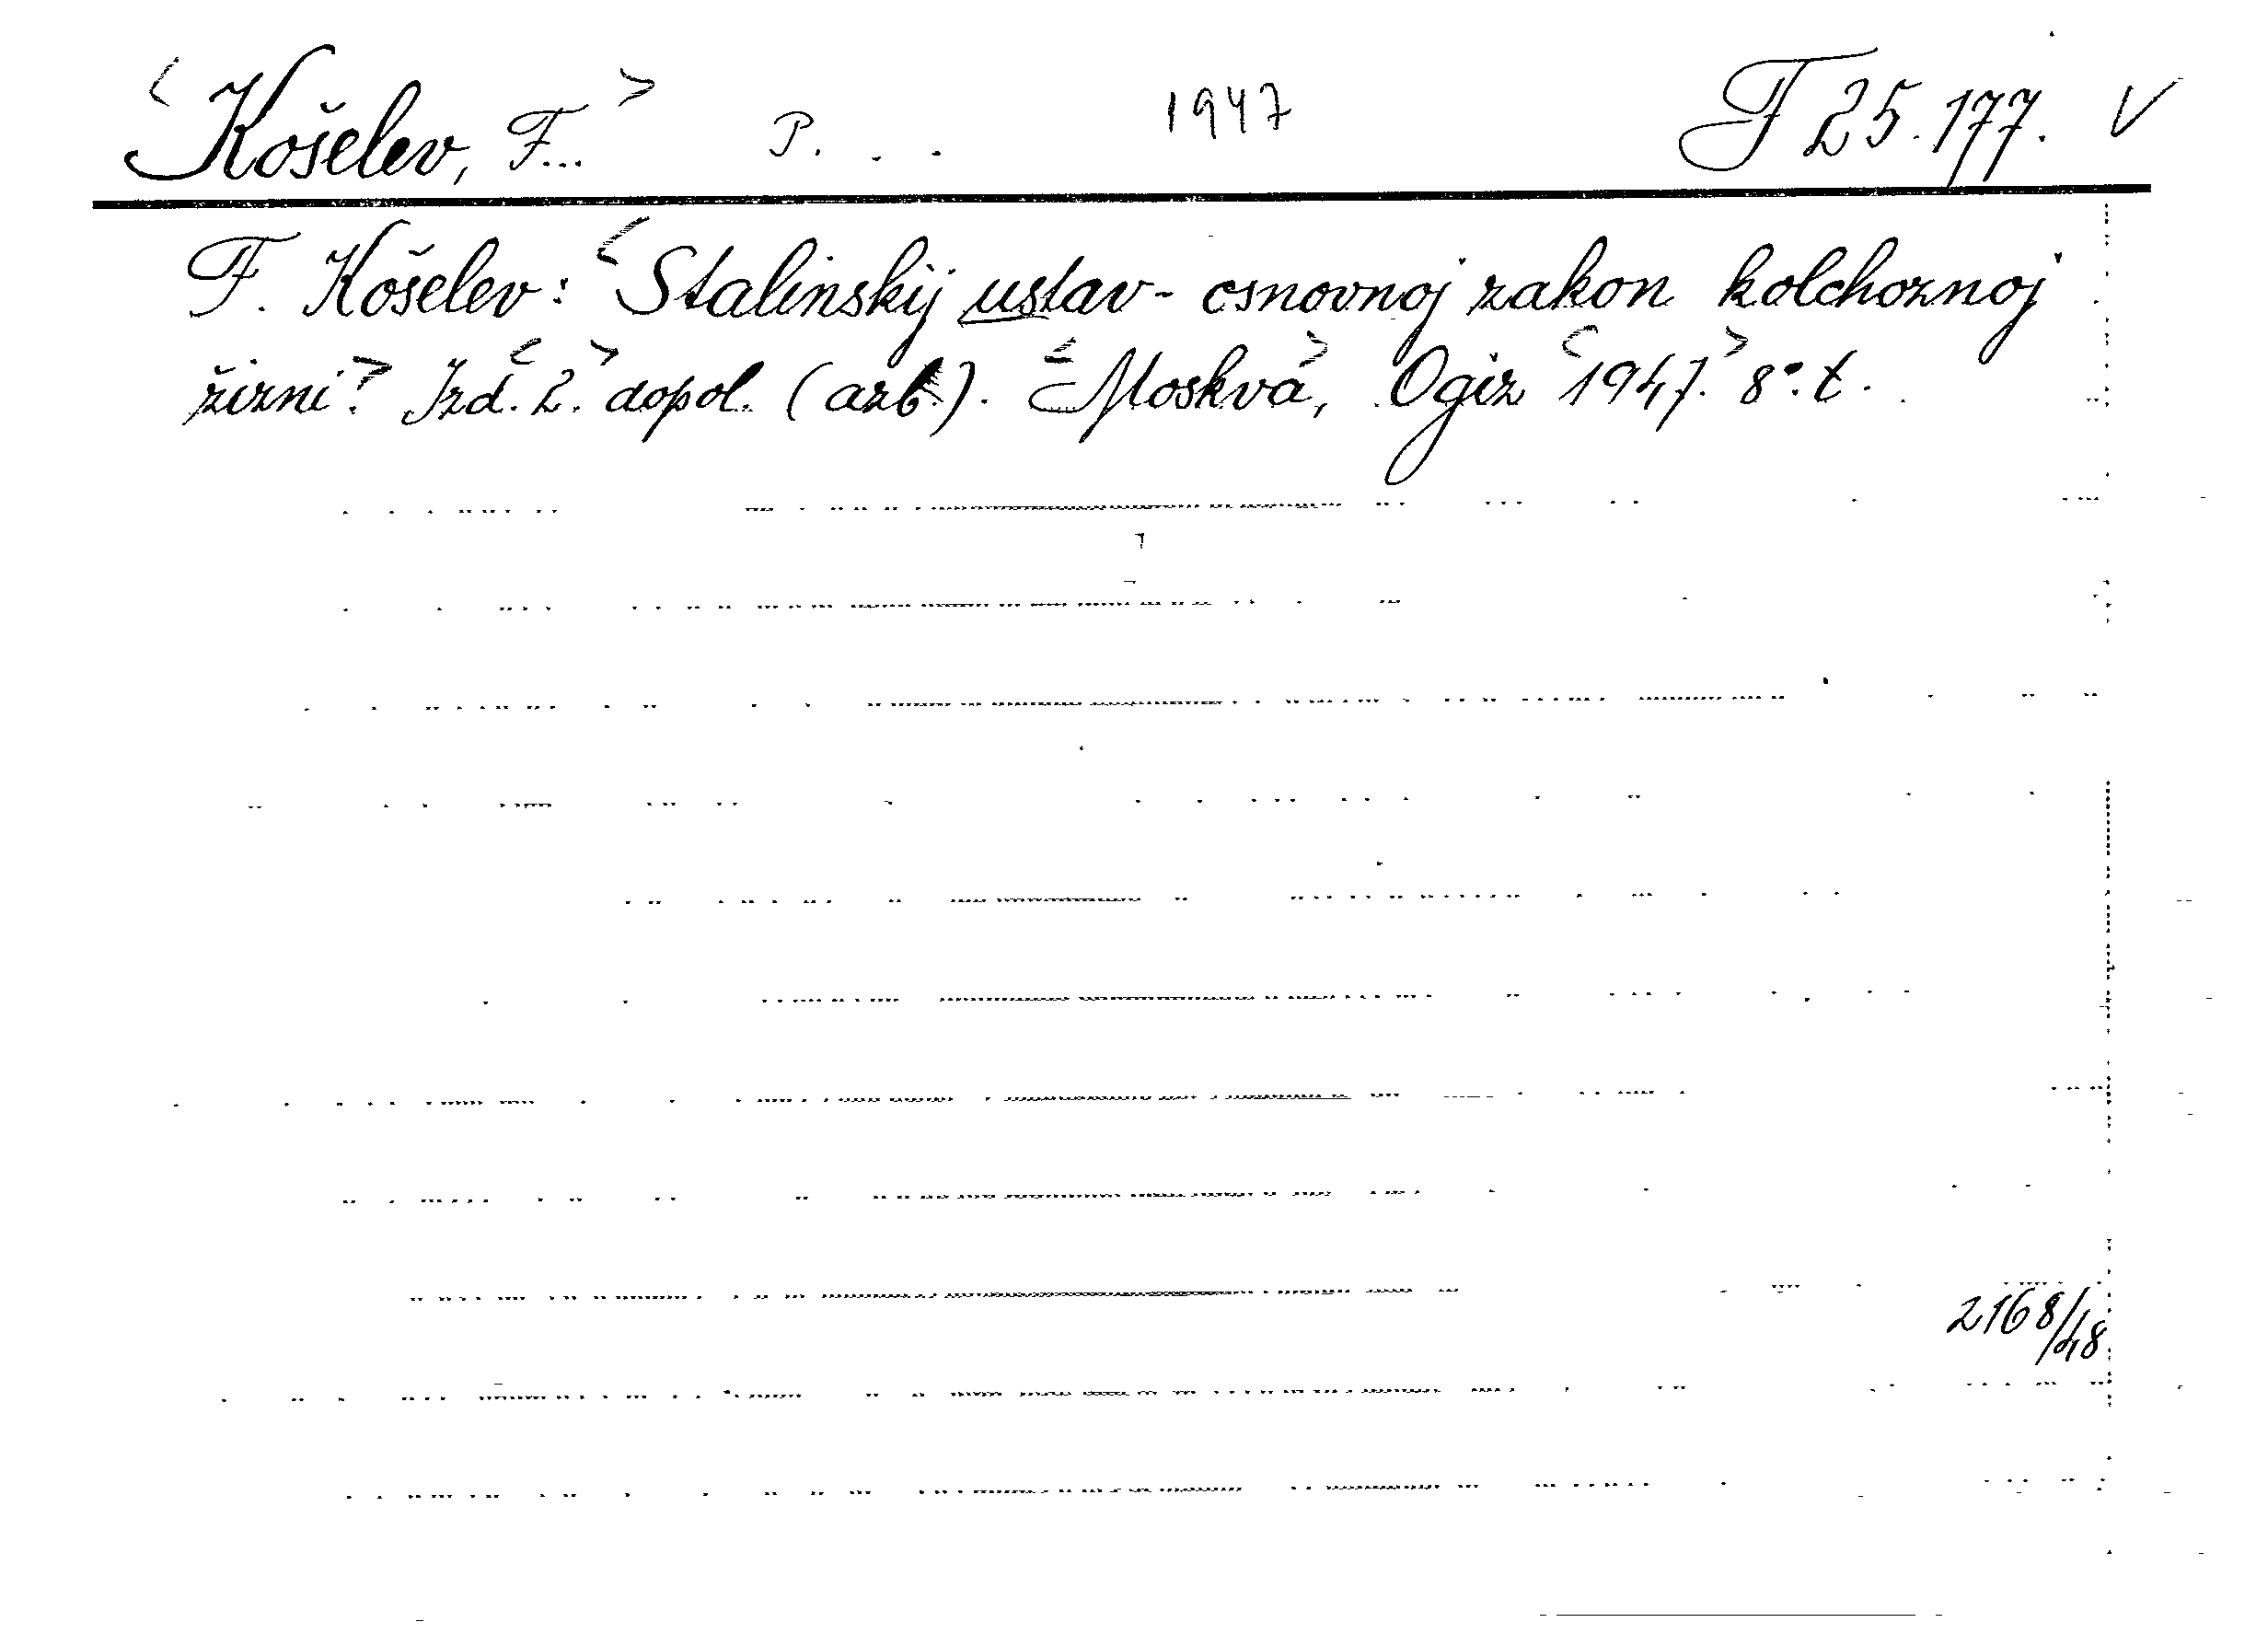 <Košelev, F...> P. . . 1947 F 25.177. V
F. Košelev: <Stalinskij ustav - osnovnoj zakon kolchoznoj
žizni.> Izd. <2.> dopol. (azb.). <Moskva>, Ogiz <1947.> 8°. t.
2168/48.